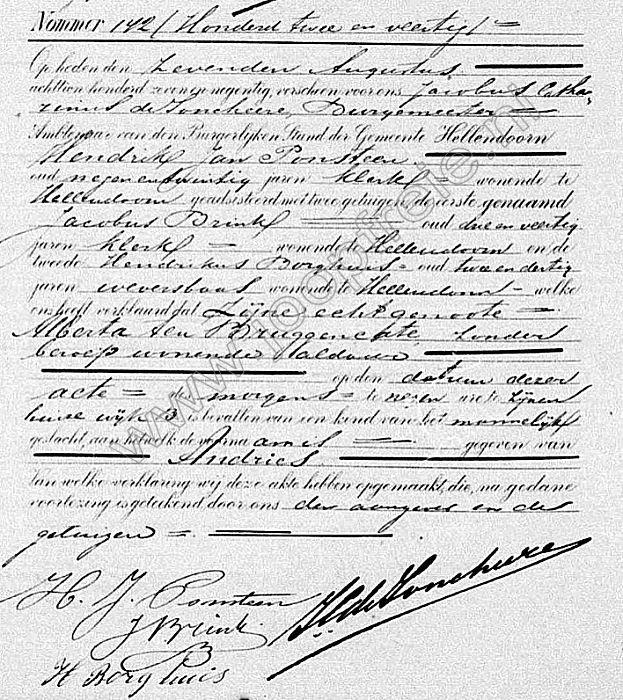 Nommer 142 (Honderd twee en veertig) =
Op heden den zevenden Augustus
achttien honderd zeven en negentig verscheen voor ons Jacobus Catha-
rinus de Joncheere, Burgemeester =
Ambtenaar van den Burgerlijken Stand der Gemeente Hellendoorn
Hendrik Jan Ponsteen
oud negenentwintig jaren klerk = wonende te
Hellendoorn geadsisteerd met twee getuigen, de eerste genaamd
Jacobus Brink = oud drie en veertig
jaren klerk = wonende te Hellendoorn en de
tweede Hendrikus Borghuis = oud twee en dertig
jaren weversbaas wonende te Hellendoorn = welke
ons heeft verklaard dat Zijne echtgenoote =
Alberta ten Bruggencate, zonder
beroep wonende aldaar
op den datum dezer
acte = des morgens = te negen ure te zijnen
huize wijk 3 is bevallen van een kind van het mannelijk
geslacht, aan hetwelk de voornaamis = gegeven van
Andries
Van welke verklaring wij deze akte hebben opgemaakt, die, na gedane
voorlezing is geteekend door ons den aangever en de
getuigen =
H. J. Ponsteen
J Brink
H Borghuis
JC de Joncheere
www.jooptrefe.nl